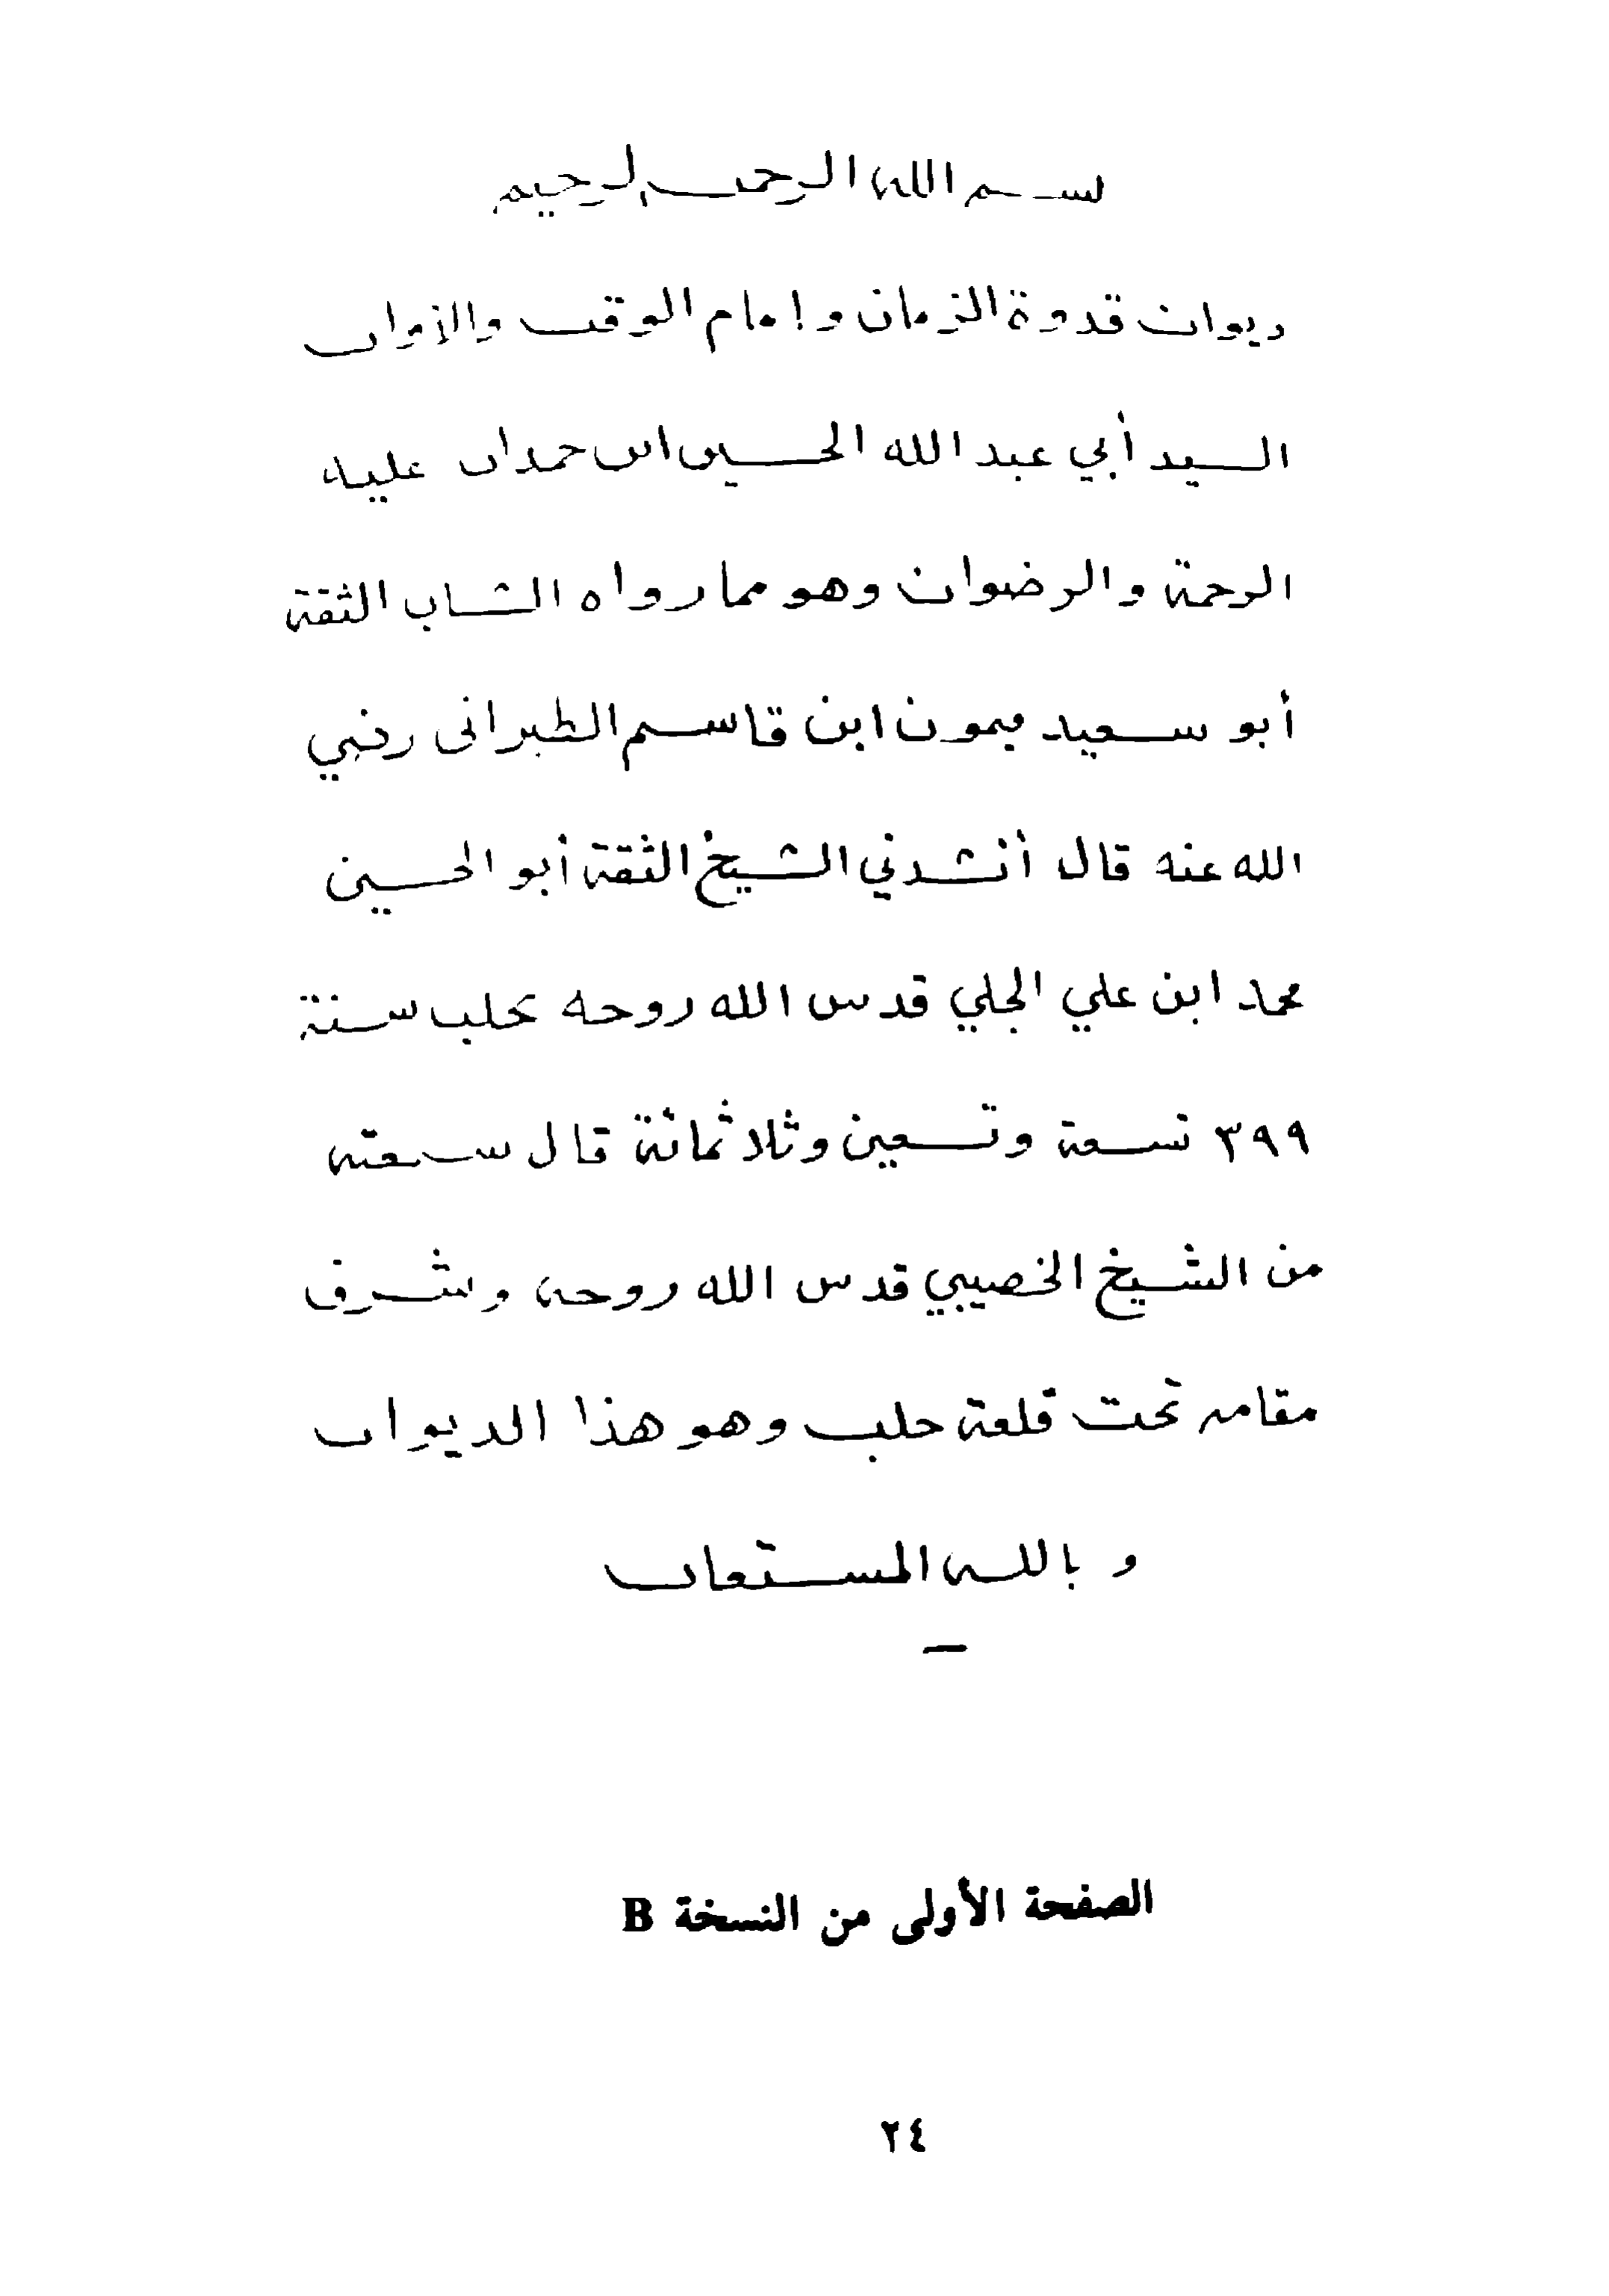 بسم الله الرحمن الرحيم
ديوان قدوة الزمان وإمام الوقت والأوان
السيد أبي عبد الله الحسين ابن حمدان عليه
الرحمة والرضوان وهو مما رواه الشاب الثقة
أبو سعيد ميمون ابن قاسم الطبراني رضي
الله عنه قال أنشدني الشيخ الثقة أبو الحسين
محمد ابن علي الجلي قدس الله روحه بحلب سنة
٣٩٩ تسعة وتسعين وثلاثمائة قال سمعته
من الشيخ الخصيبي قدس الله روحه وشرف
مقامه تحت قلعة حلب وهو هذا الديوان
وبالله المستعان
الصفحة الأولى من النسخة B
٢٤